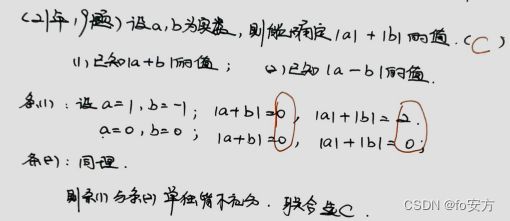 (21年，9题) 设a,b为实数，则能确定|a|+|b|的值.(C)
(1) 已知|a+b|的值； (2) 已知|a-b|的值.
条(1)：设a=1，b=-1；|a+b|=0，|a|+|b|=2.
a=0，b=0；|a+b|=0，|a|+|b|=0；
条(2)：同理.
则条(1)与条(2)单独皆不充分. 联合选C.
CSDN @fo安方